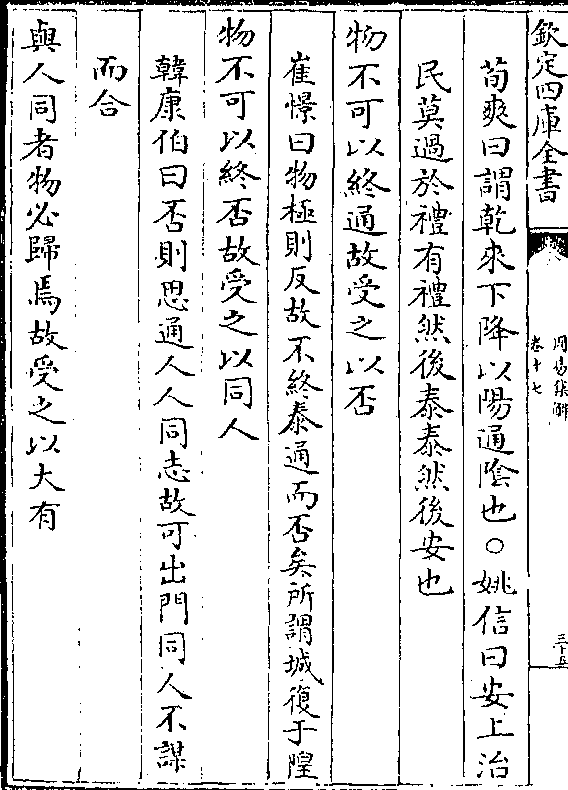 欽定四庫全書
周易集解
卷十七
三十五
荀爽曰謂乾來下降以陽通隂也○姚信曰安上治
民莫過於禮有禮然後泰泰然後安也
物不可以終通故受之以否
崔憬曰物極則反故不終泰通而否矣所謂城復于隍
物不可以終否故受之以同人
韓康伯曰否則思通人人同志故可出門同人不謀
而合
與人同者物必歸焉故受之以大有